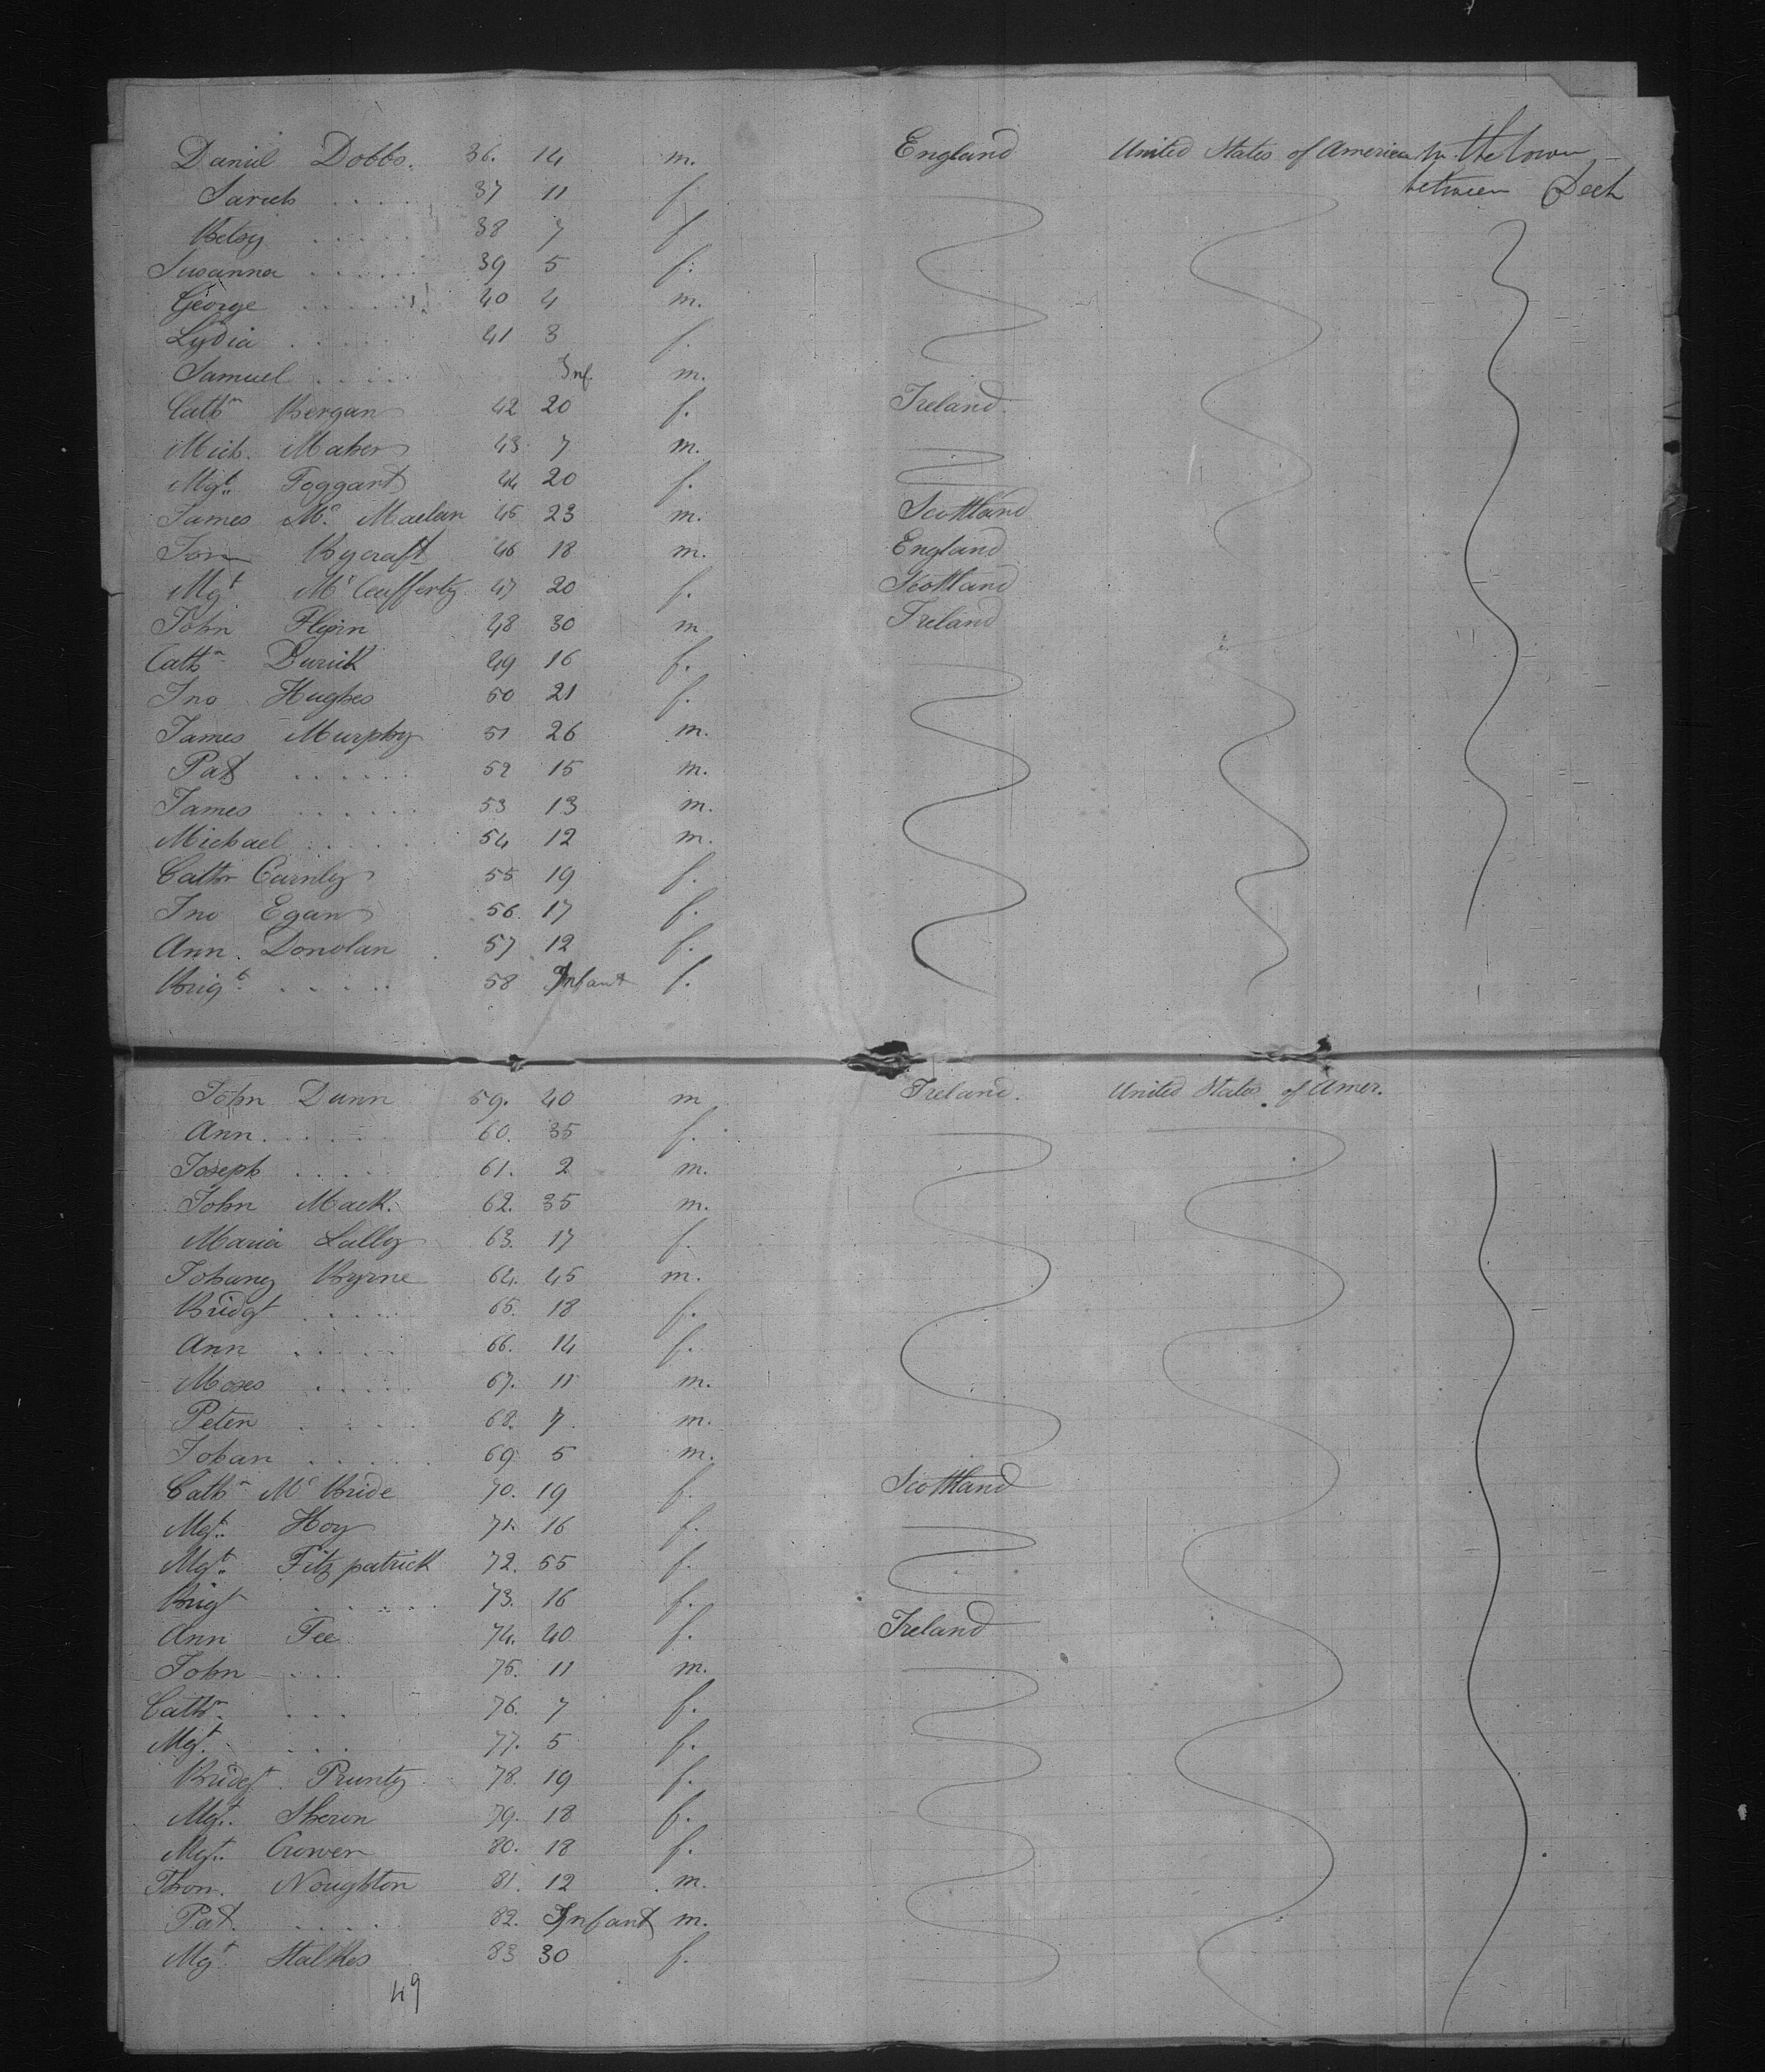 Daniel Dobbs. 36. 14 m. England United States of America In the lower
Sarah . . . . 37 11 f. between Deck
Betsy . . . . . 38 7 f
Susanna . . . . . 39 5 f.
George . . . . . 40 4 m.
Lydia . . . . 41 3 f.
Samuel . . . . Inf. m.
Cathn Bergan 42 20 f. Ireland.
Mich. Maher 43 7 m.
Mgt. Foggart 44 20 f.
James Mc. 45 23 m. Scottland
Rycraft 46 18 m. England
Mgt Mc Cafferty 47 20 f. Scottland
John Flynn 48 30 m Ireland
Cathn 49 16 f.
Jno Hughes 50 21 f.
James Murphy 51 26 m.
Pat . . . . . . 52 15 m.
James . . . . . . 53 13 m.
Michael . . . . . . 54 12 m.
Cathn 55 19 f.
Jno Egan 56. 17 f.
Ann. Donolan . 57 12 f.
Brigt. . . . . . 58 Infant f.
John Dunn 59. 40 m Ireland. United States of Amer.
Ann. . . . . . 60. 35 f.
Joseph . . . . 61. 2 m.
John Mack. 62. 35 m.
Maria Lally 63. 17 f.
Byrne 64. 45 m.
Bridgt . . . . 65. 18 f.
Ann . . . . 66. 14 f.
Moses . . . . . 67. 11 m.
Peter . . . . . 68. 7. m.
Johan . . . . . 69 5 m.
Cathn Mc Bride 70. 19 f. Scottland
Mgt. Hoy 71. 16 f.
Mgt. Fitz patrick 72. 55 f.
Brigt . . . . . 73. 16 f.
Ann Fee 74. 40 f. Ireland
John . . . 75. 11 m.
Cathn. . . . 76. 7 f.
Mgt. . . . 77. 5 f.
Bridgt. Prunty 78. 19 f.
Mgt. Sheron 79. 18 f.
Mgt. 80. 18 f.
Thom. Noughton 81. 12 m.
Pat. . . . . . 82. Infant m.
Mgt. Stalkes 83 30 f.
49